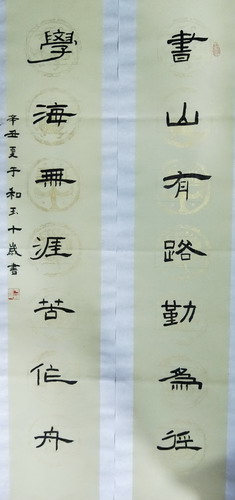 書山有路勤為徑
學海無涯苦作舟
辛丑夏于和玉十歲書